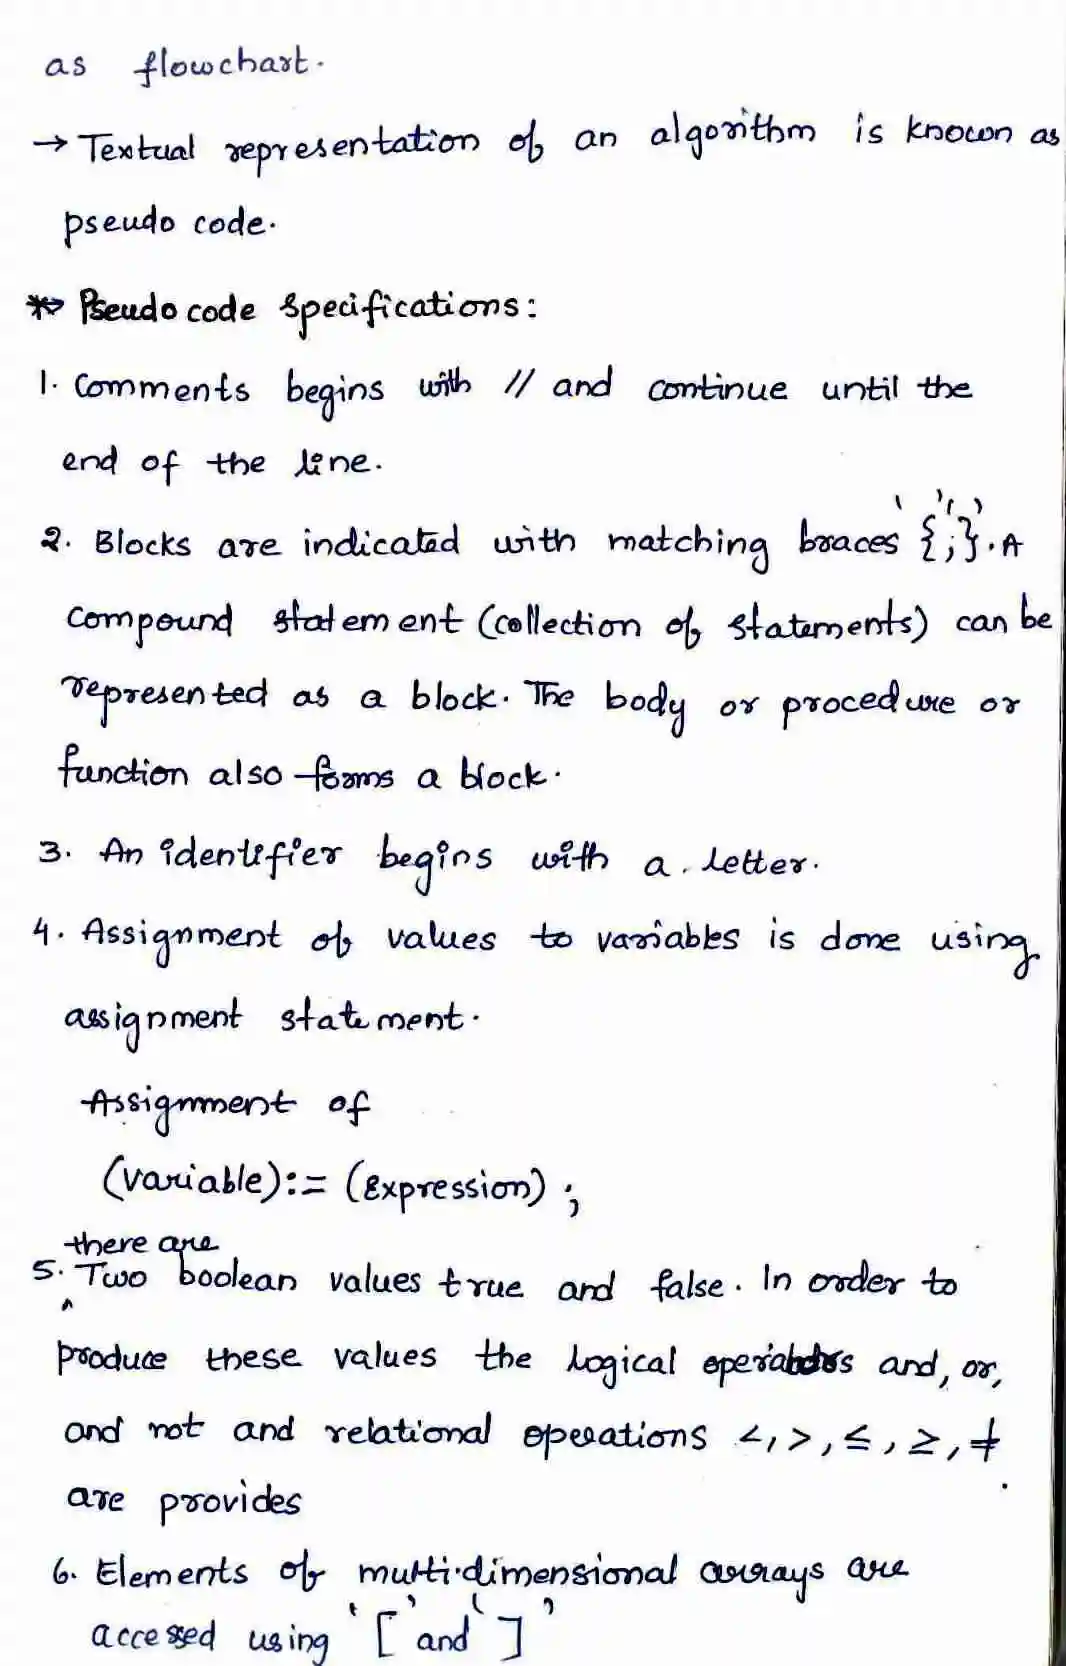 as flowchart.
→ Textual representation of an algorithm is known as
pseudo code.
*→ Pseudo code specifications:
1. Comments begins with // and continue until the
end of the line.
2. Blocks are indicated with matching braces '{';'}'. A
compound statement (collection of statements) can be
represented as a block. The body or procedure or
function also forms a block.
3. An identifier begins with a letter.
4. Assignment of values to variables is done using
assignment statement.
Assignment of
(variable):= (expression);
there are
5. ^ Two boolean values true and false. In order to
produce these values the logical operators and, or,
and not and relational operations <, >, ≤, ≥, ≠
are provides.
6. Elements of multi-dimensional arrays are
accessed using '[' and ']'